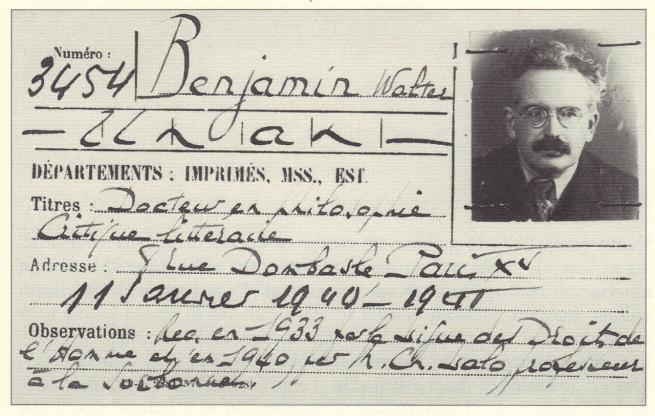 Numéro :
3454
Benjamin Walter
— Un an —
DÉPARTEMENTS : IMPRIMÉS, MSS., EST.
Titres : Docteur en philosophie
Critique litteraire
Adresse : rue Dombasle Paris XV
11 Janvier 1940 - 1941
Observations : Rec. en 1933 par la Ligue des Droits de
l'Homme et en 1940 par professeur
à la Sorbonne